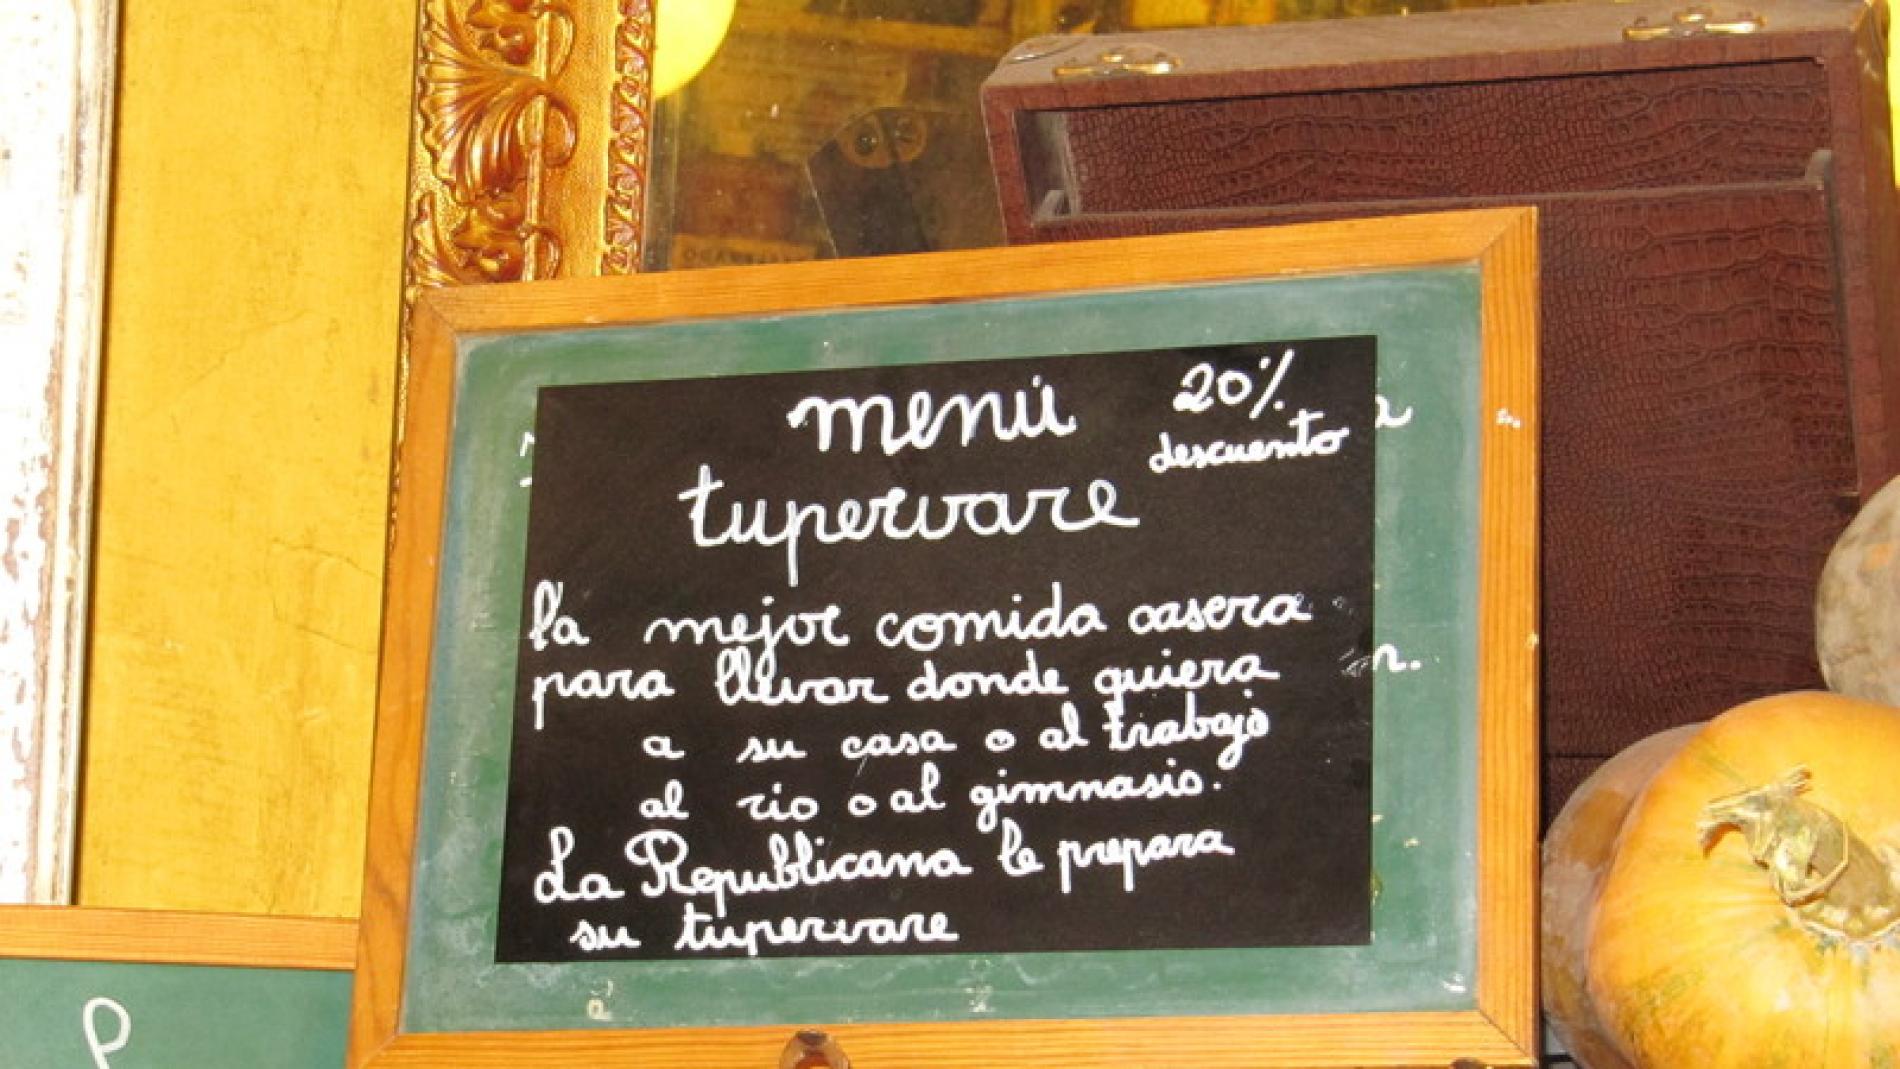 menú
20%
descuento
tuperware
la mejor comida casera
para llevar donde quiera
a su casa o al trabajo
al rio o al gimnasio.
La Republicana le prepara
su tuperware